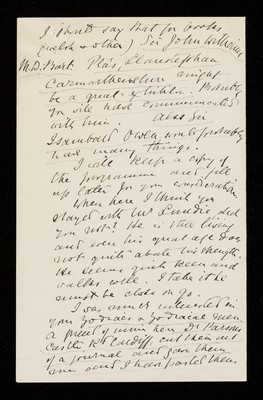 I should say that for books
(welsh & other) Sir John Williams
M.D. Bart. Plas, Llanstephan
Carmarthenshire might
be a great exhibitor. Probably
you will have communicated
with him. Also Sir
Isambard Owen would probably
have many things.
I will keep a copy of
the programme and fill
up later for your consideration
When here I think you
stayed with Mr Lundie, did
you not? He is still living
and even his great age does
not quite abate his strength.
He seems quite keen and
walks well. I take it he
must be close on 90.
I was much interested in
your Zodiacs & Zodiacal Gems.
a friend of mine here Dr Parsons
Castle Rd Cardiff, cut them out
of a journal and gave them
me and I have pasted them